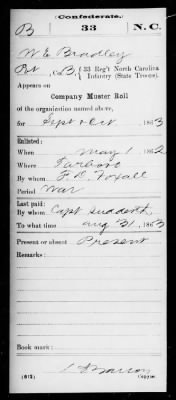 Confederate.
B 33 N.C.
W E Bradley
Pvt, Co. B, 33 Reg't North Carolina
Infantry (State Troops).
Appears on
Company Muster Roll
of the organization named above,
for Sept & Oct, 1863
Enlisted:
When May 1, 1862
Where Tarboro
By whom F. D. Foxall
Period War
Last paid:
By whom Capt Sudderth
To what time Aug 31, 1863
Present or absent Present
Remarks:
Book mark:
(642) Copyist.